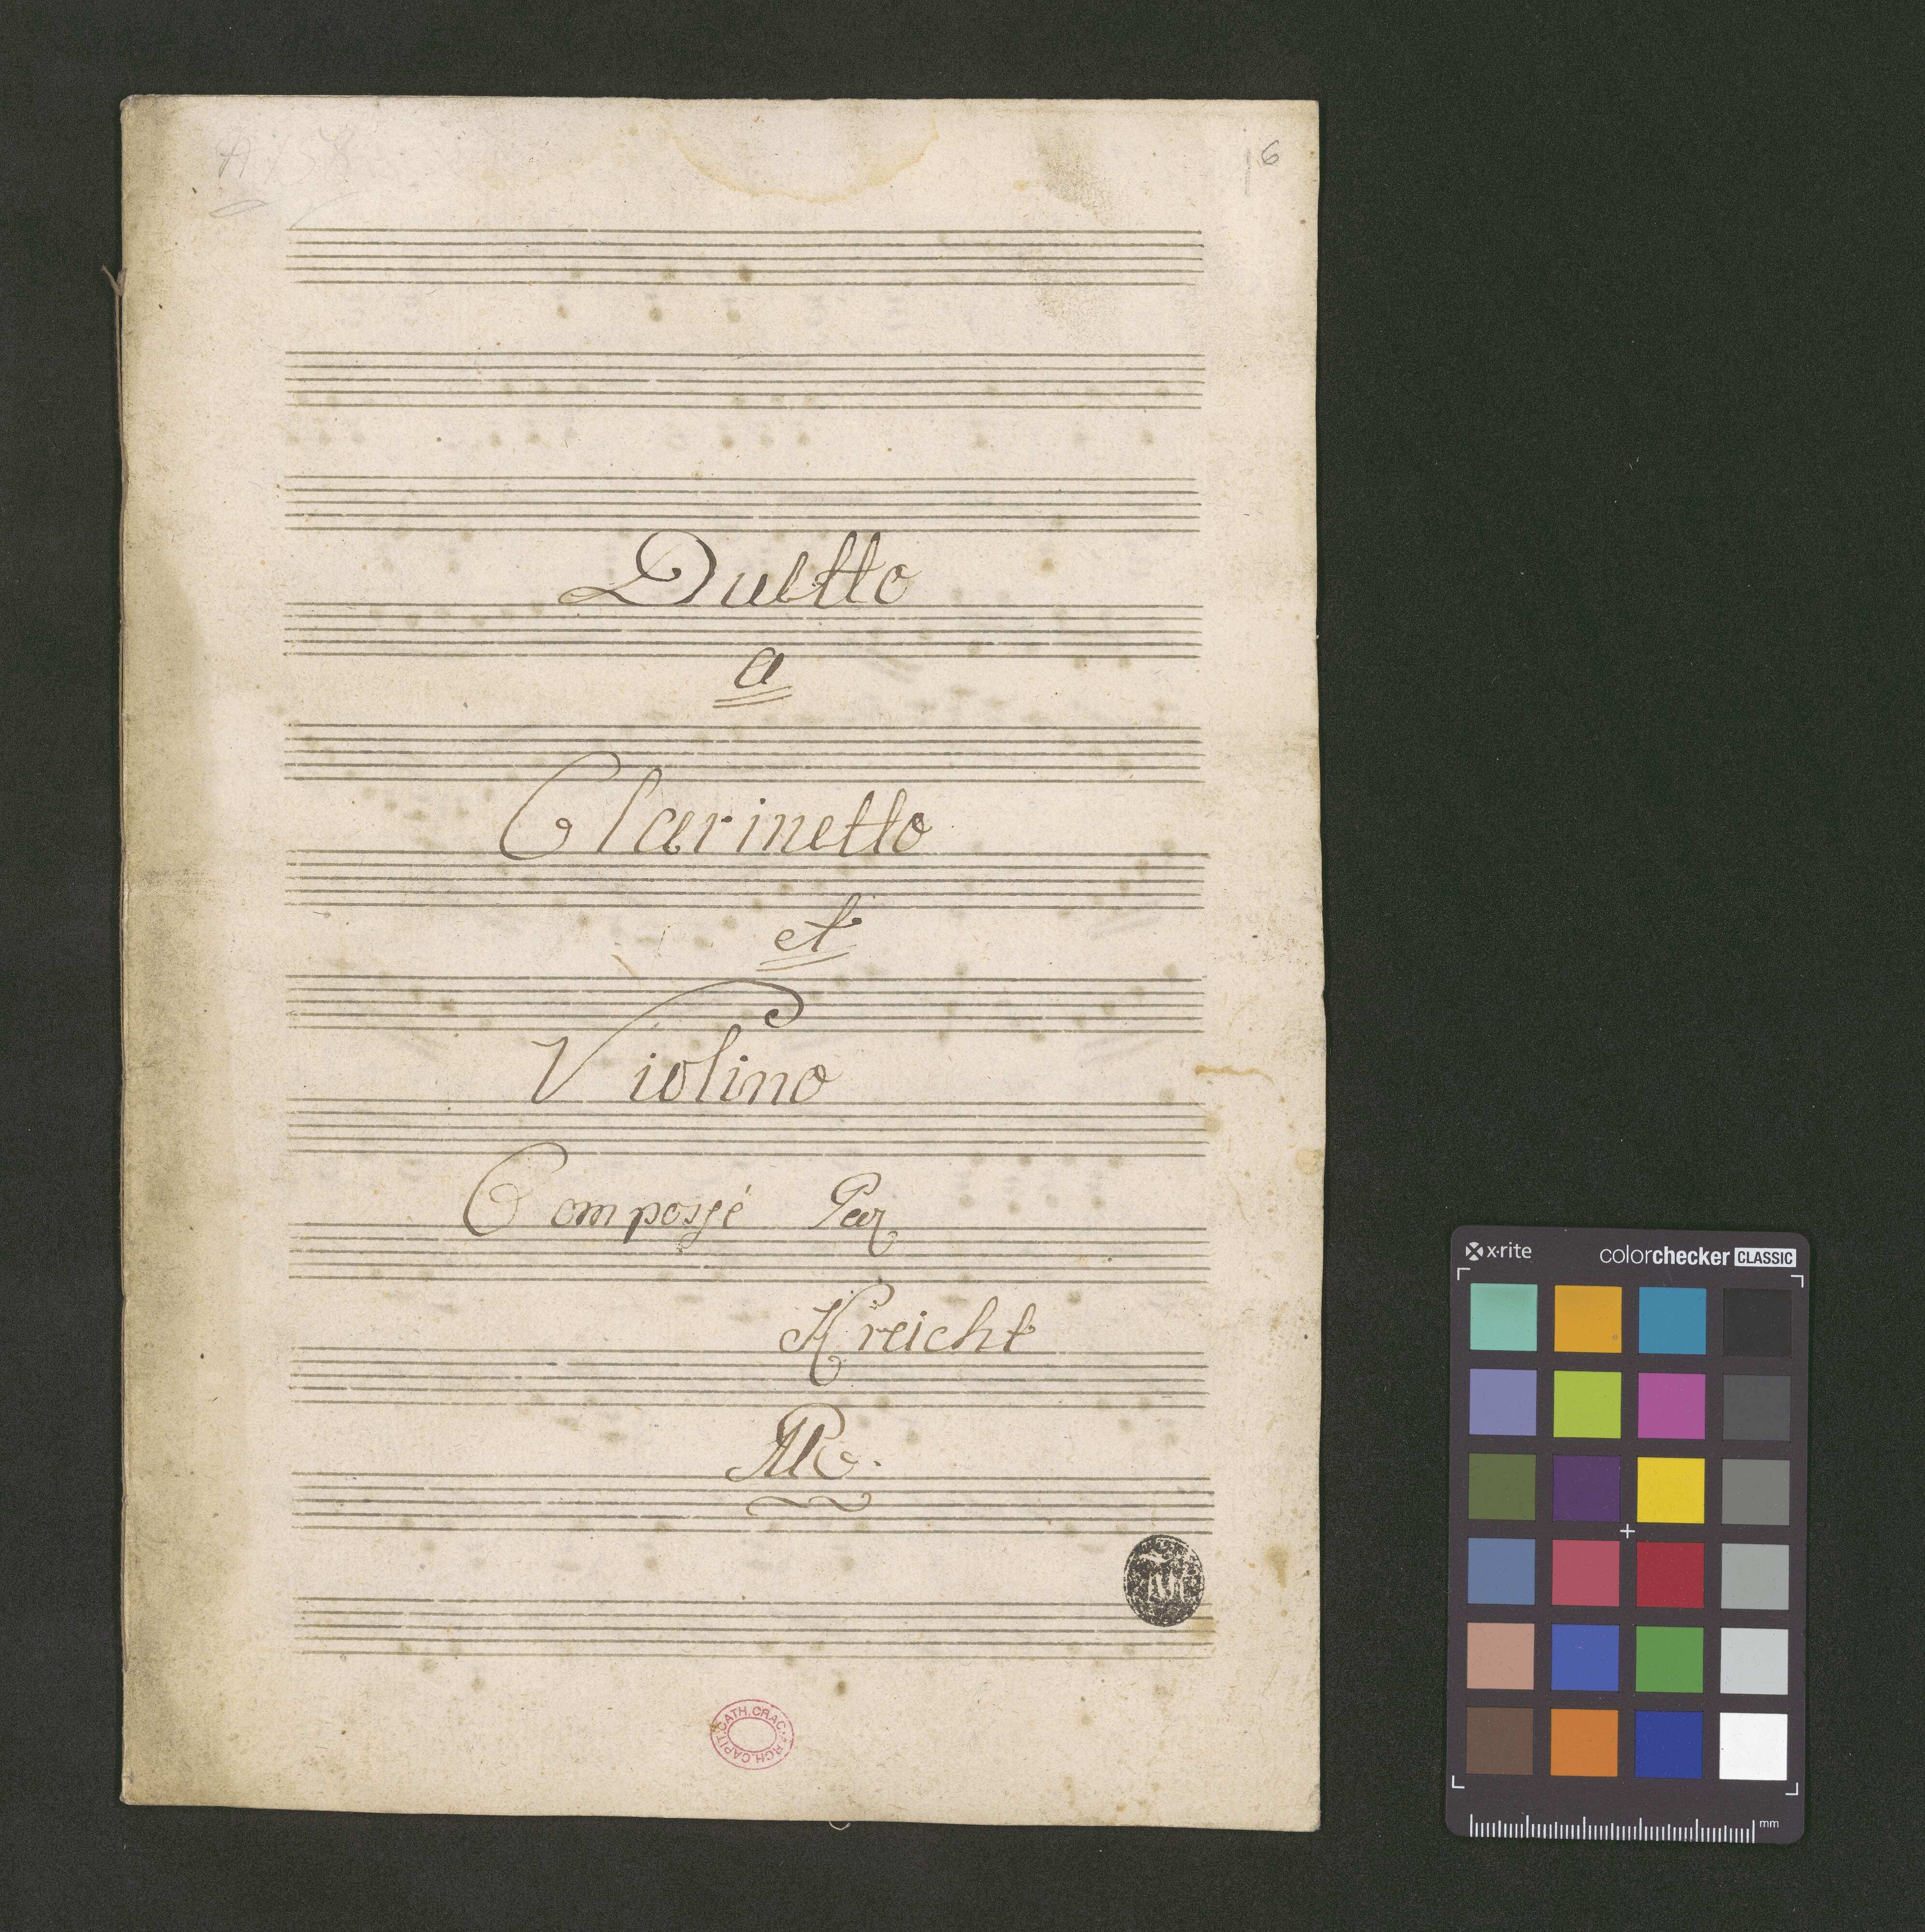 6
Duetto
a
Clarinetto
et
Violino
Compossé Par
Kreicht
ARCH.CAPIT.CATH.CRAC.
x·rite
colorchecker CLASSIC
mm